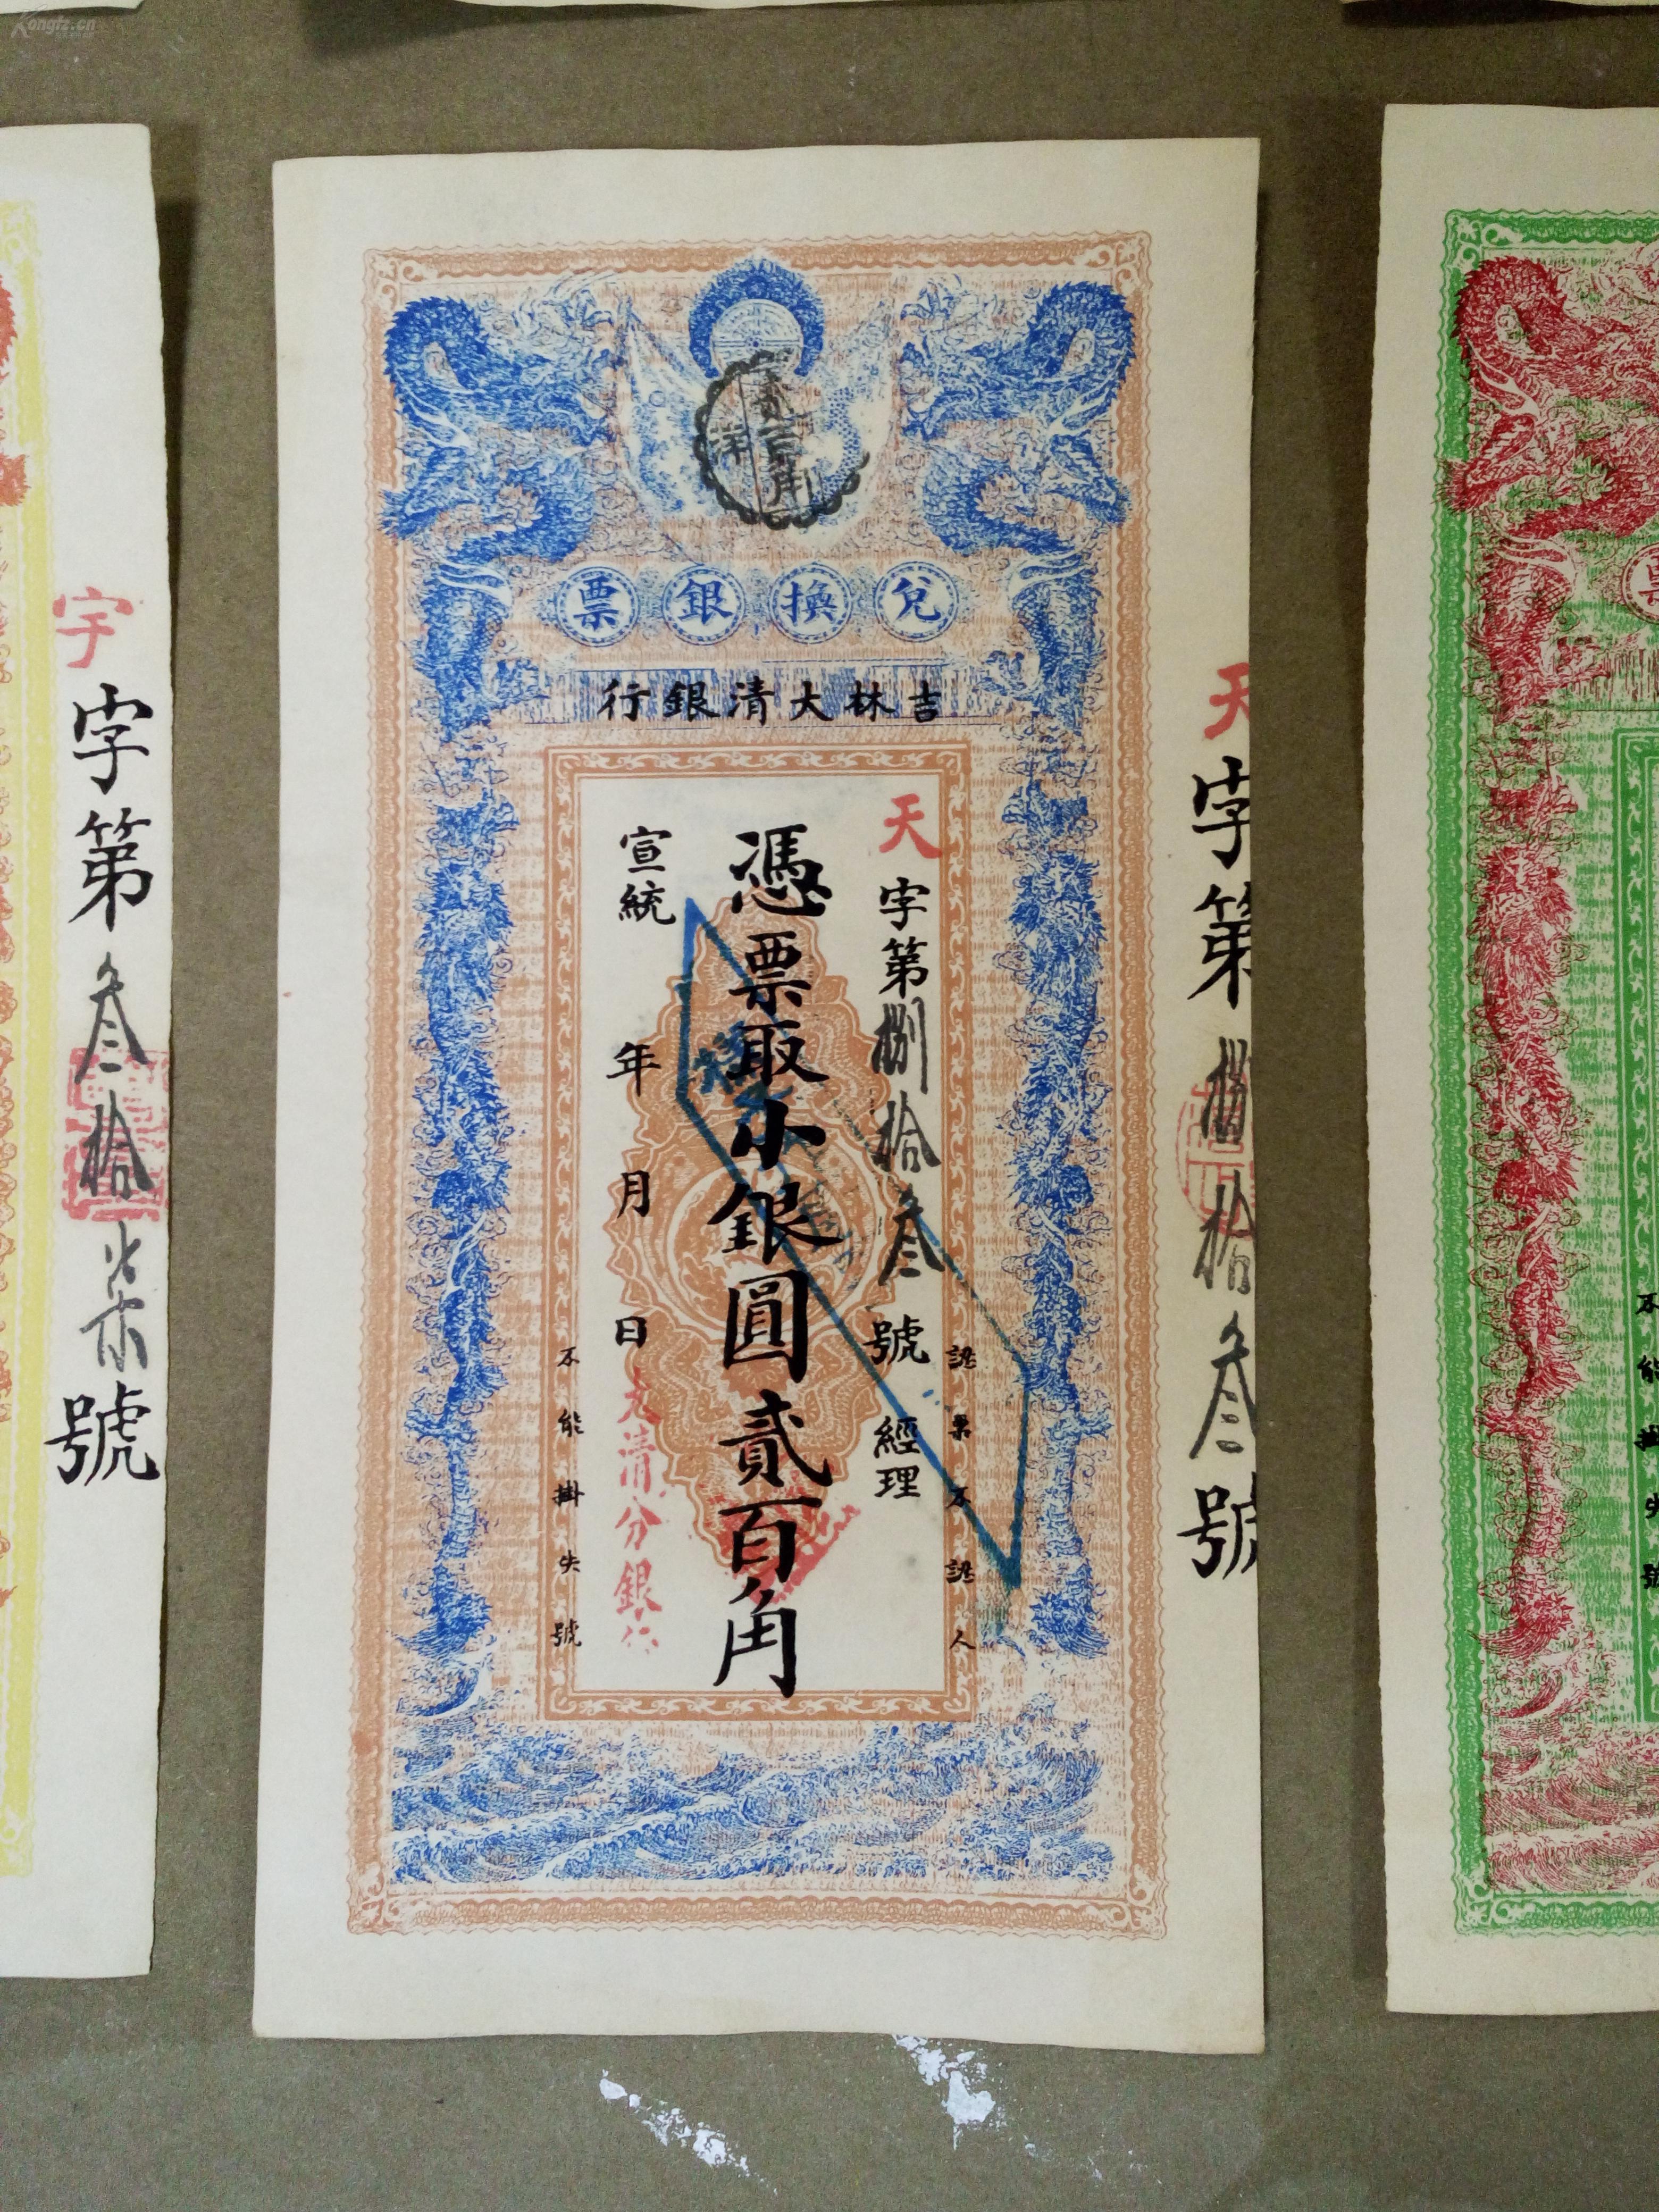 Kongfz.cn
兌換銀票
吉林大清銀行
天字第捌拾叁號 經理
憑票取小銀圓貳百角
宣統 年 月 日
大清分銀行
認票不認人
不能掛失號
天字第捌拾叁號
宇字第叁拾柒號
不能掛失號